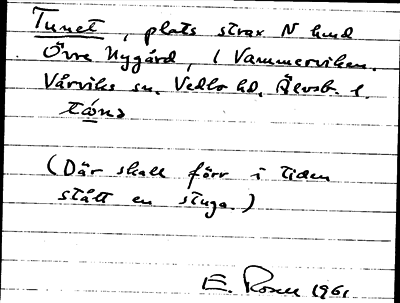 Tunet, plats strax N hmd
Övre Nygård, i Vammerviken.
Vårviks sn. Vedbo hd. Älvsb. l.
tɷ̄nə
(Där skall förr i tiden
stått en stuga.)
E. Rosell 1961